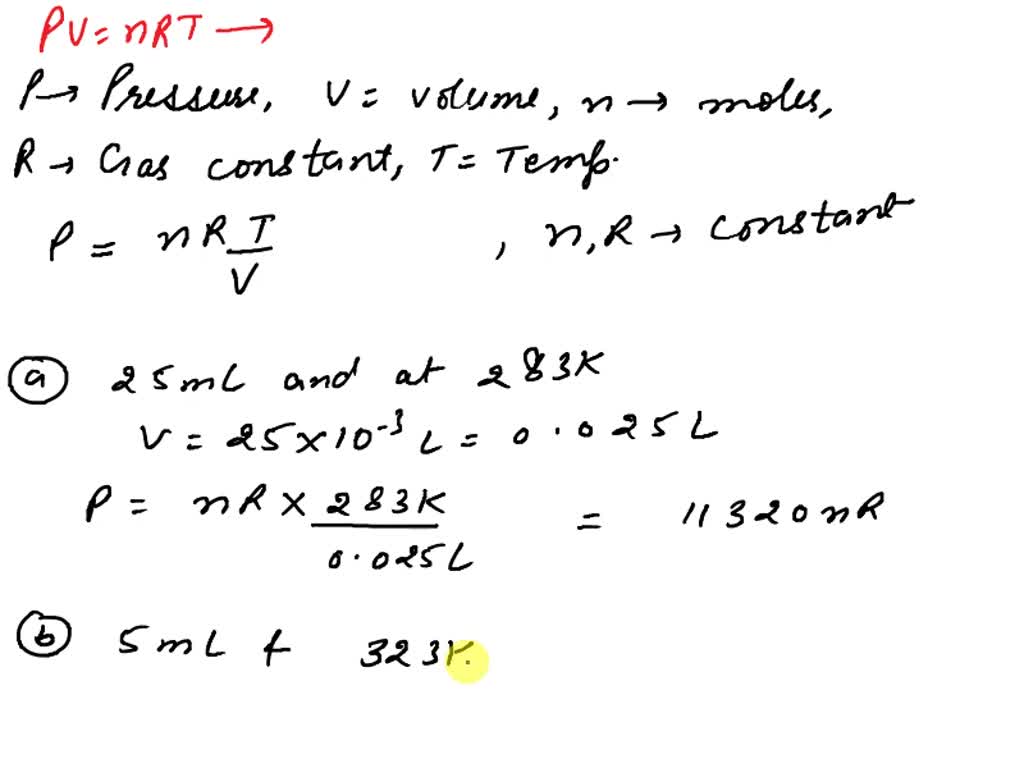 PV = nRT →
P → Pressure, V = volume, n → moles,
R → Gas constant, T = Temp.
P = nR T/V , n, R → constant
(a) 25mL and at 283K
V = 25 × 10⁻³ L = 0.025L
P = nR × 283K/0.025L = 11320 nR
(b) 5mL & 323K.